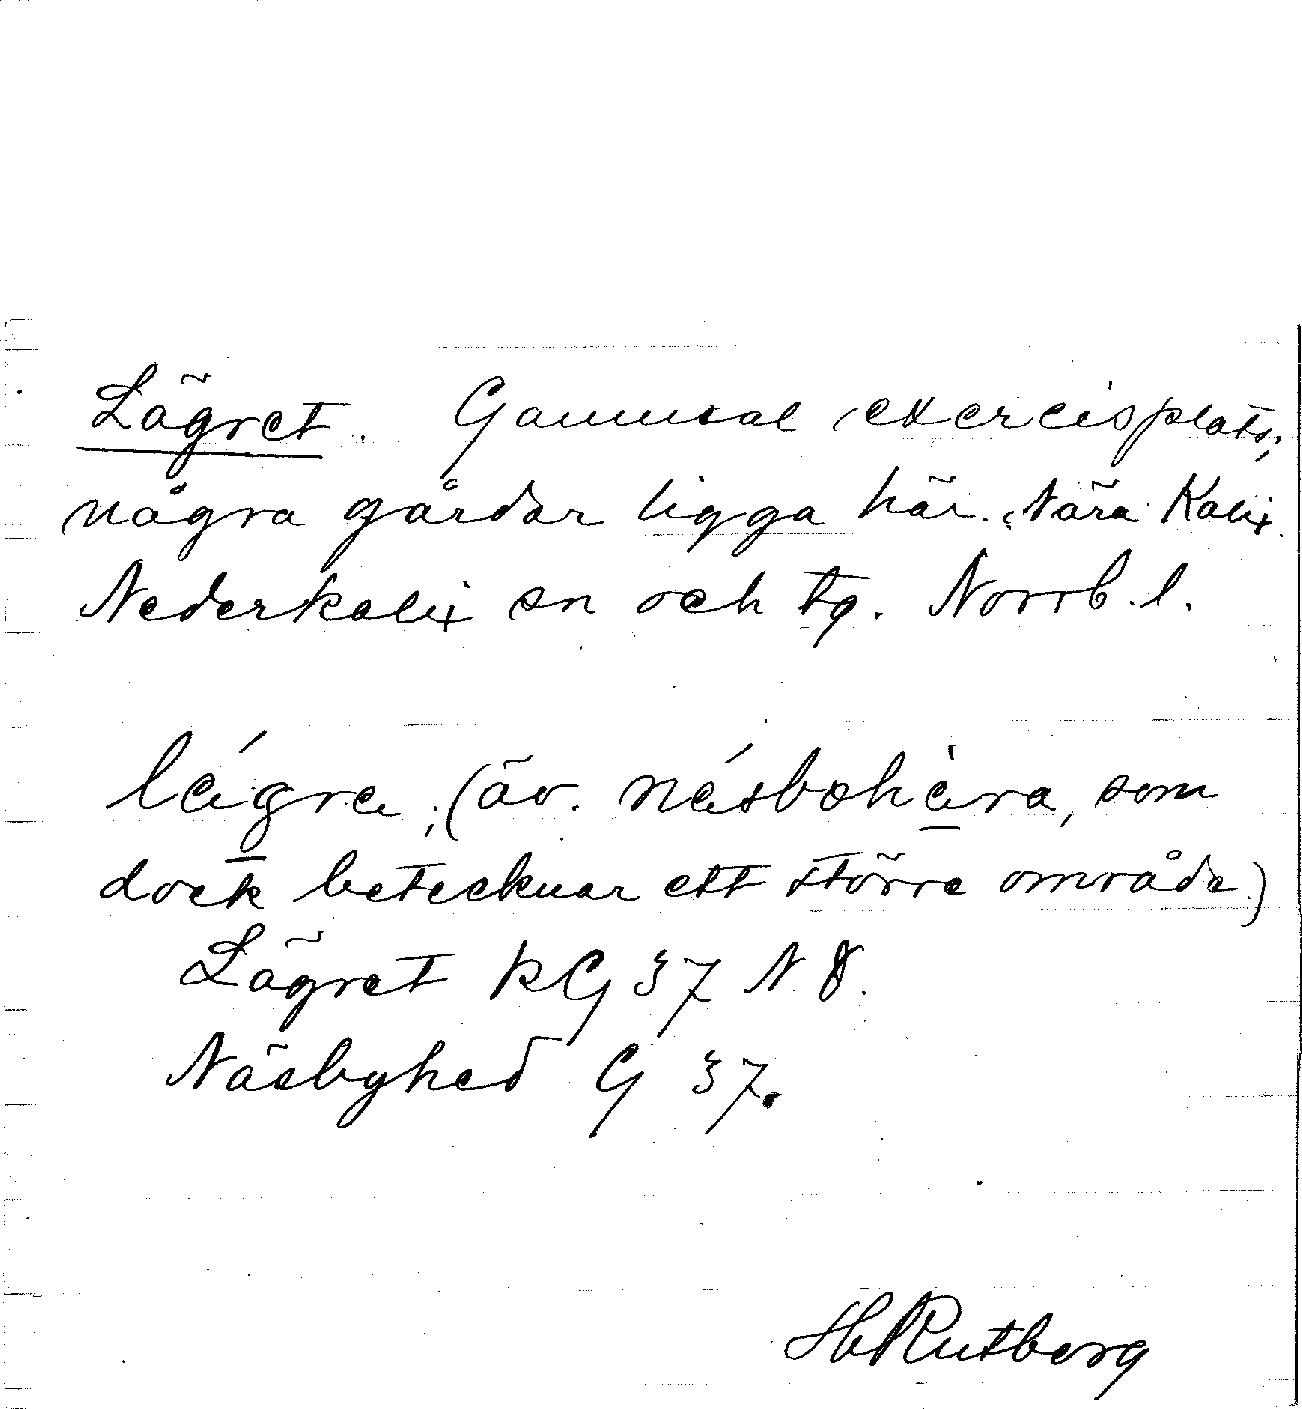 Lägret. Gammal exercisplats;
några gårdar ligga här. Nära Kalix
Nederkalix sn och tg. Norrb. l.
lǽgrɐ, (äv. nǽsbohèɐra, som
dock betecknar ett större område)
Lägret KG 37 N 8.
Näsbyhed G 37.
H Rutberg